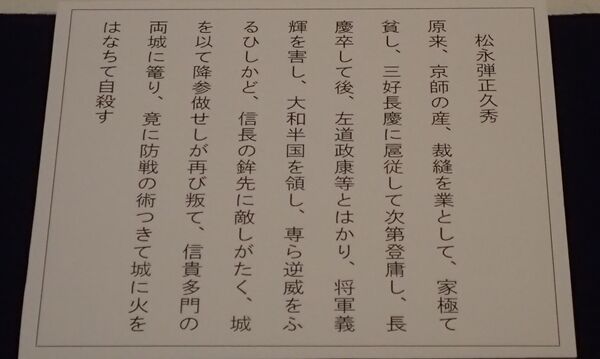 松永弾正久秀
原来、京師の産、裁縫を業として、家極て
貧し、三好長慶に扈従して次第登庸し、長
慶卒して後、左道政康等とはかり、将軍義
輝を害し、大和半国を領し、専ら逆威をふ
るひしかど、信長の鉾先に敵しがたく、城
を以て降参做せしが再び叛て、信貴多門の
両城に篭り、竟に防戦の術つきて城に火を
はなちて自殺す